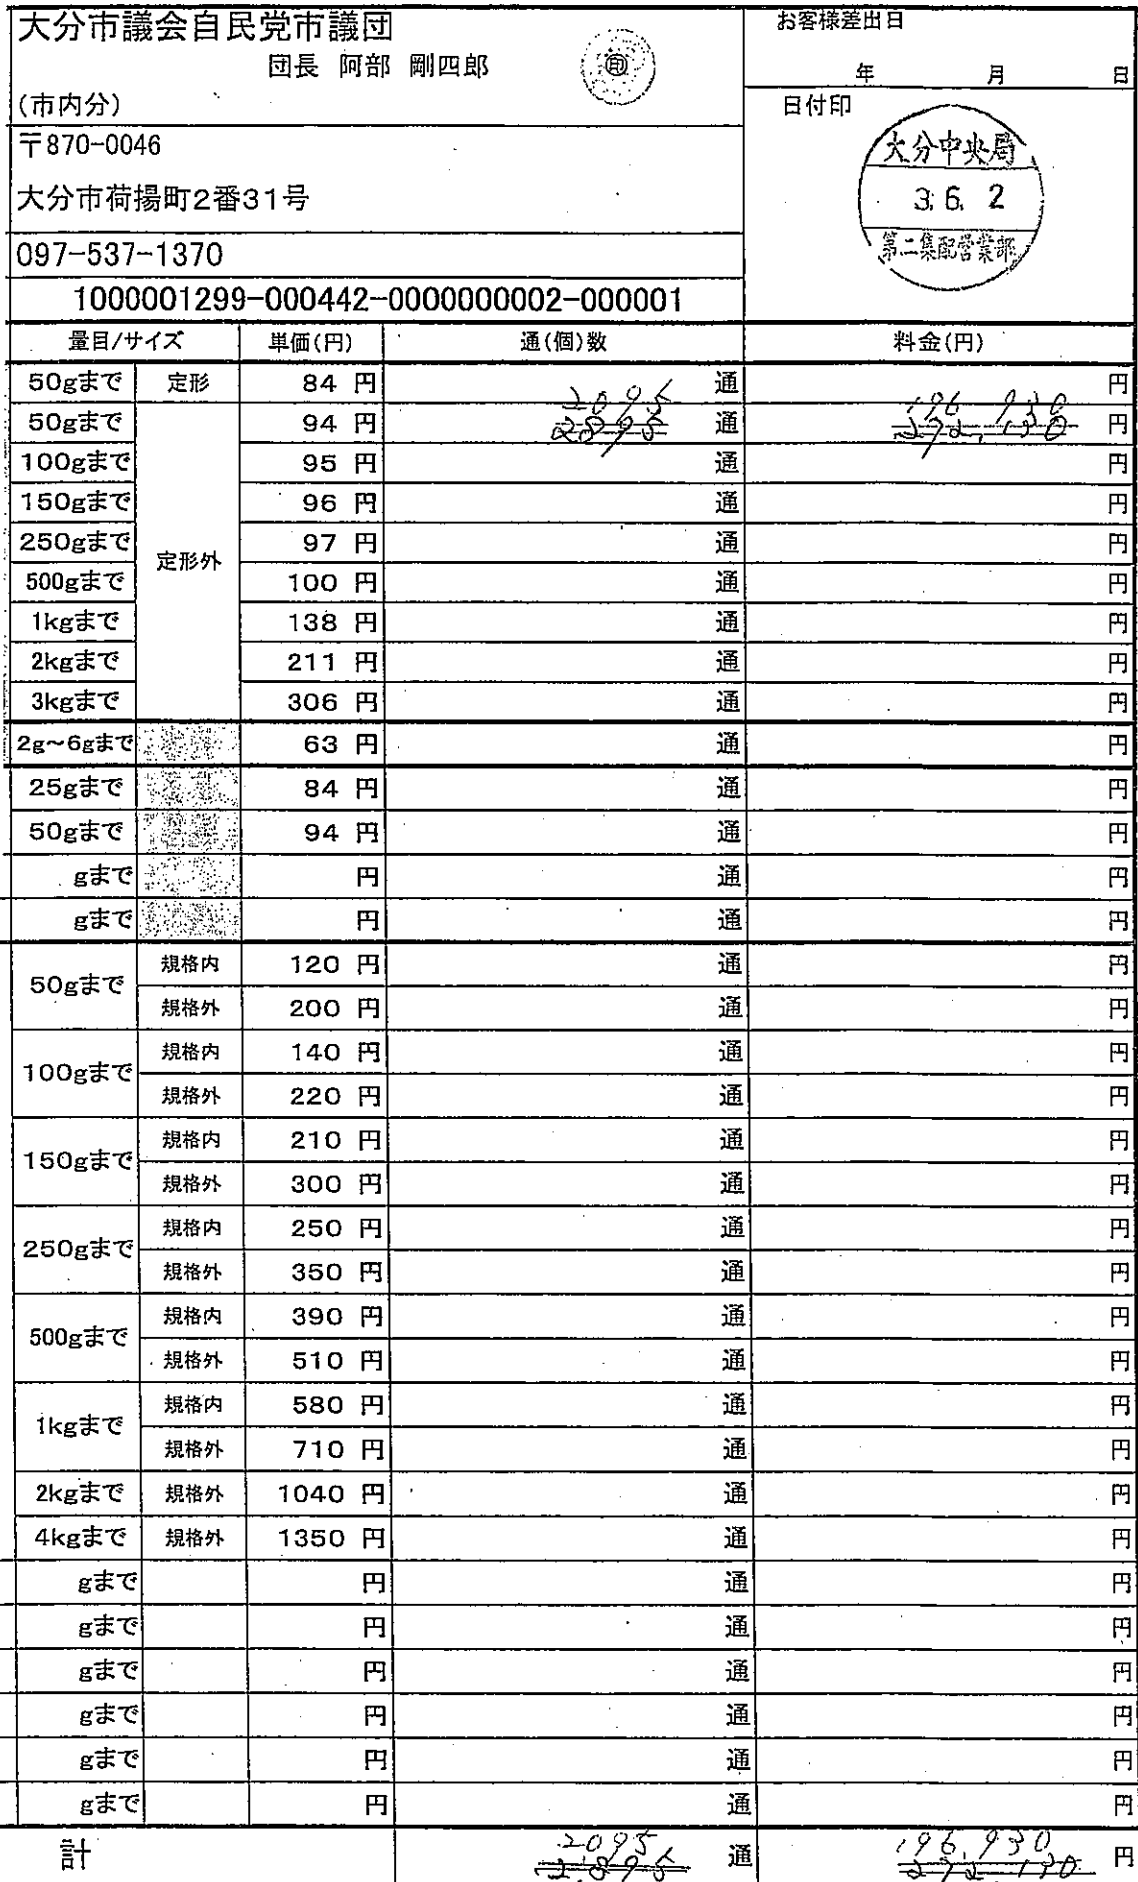 大分市議会自民党市議団
団長 阿部 剛四郎 ㊞
(市内分)
〒870-0046
大分市荷揚町2番31号
097-537-1370
1000001299-000442-0000000002-000001
お客様差出日
年 月 日
日付印
大分中央局
3.6.2
第二集配営業部
量目/サイズ 単価(円) 通(個)数 料金(円)
50gまで 定形 84 円 通 円
2095 196,930
50gまで 94 円 通 円
100gまで 95 円 通 円
150gまで 96 円 通 円
250gまで 97 円 通 円
定形外
500gまで 100 円 通 円
1kgまで 138 円 通 円
2kgまで 211 円 通 円
3kgまで 306 円 通 円
2g~6gまで 63 円 通 円
25gまで 84 円 通 円
50gまで 94 円 通 円
gまで 円 通 円
gまで 円 通 円
50gまで 規格内 120 円 通 円
規格外 200 円 通 円
100gまで 規格内 140 円 通 円
規格外 220 円 通 円
150gまで 規格内 210 円 通 円
規格外 300 円 通 円
250gまで 規格内 250 円 通 円
規格外 350 円 通 円
500gまで 規格内 390 円 通 円
規格外 510 円 通 円
1kgまで 規格内 580 円 通 円
規格外 710 円 通 円
2kgまで 規格外 1040 円 通 円
4kgまで 規格外 1350 円 通 円
gまで 円 通 円
gまで 円 通 円
gまで 円 通 円
gまで 円 通 円
gまで 円 通 円
gまで 円 通 円
計 2095 通 196,930 円